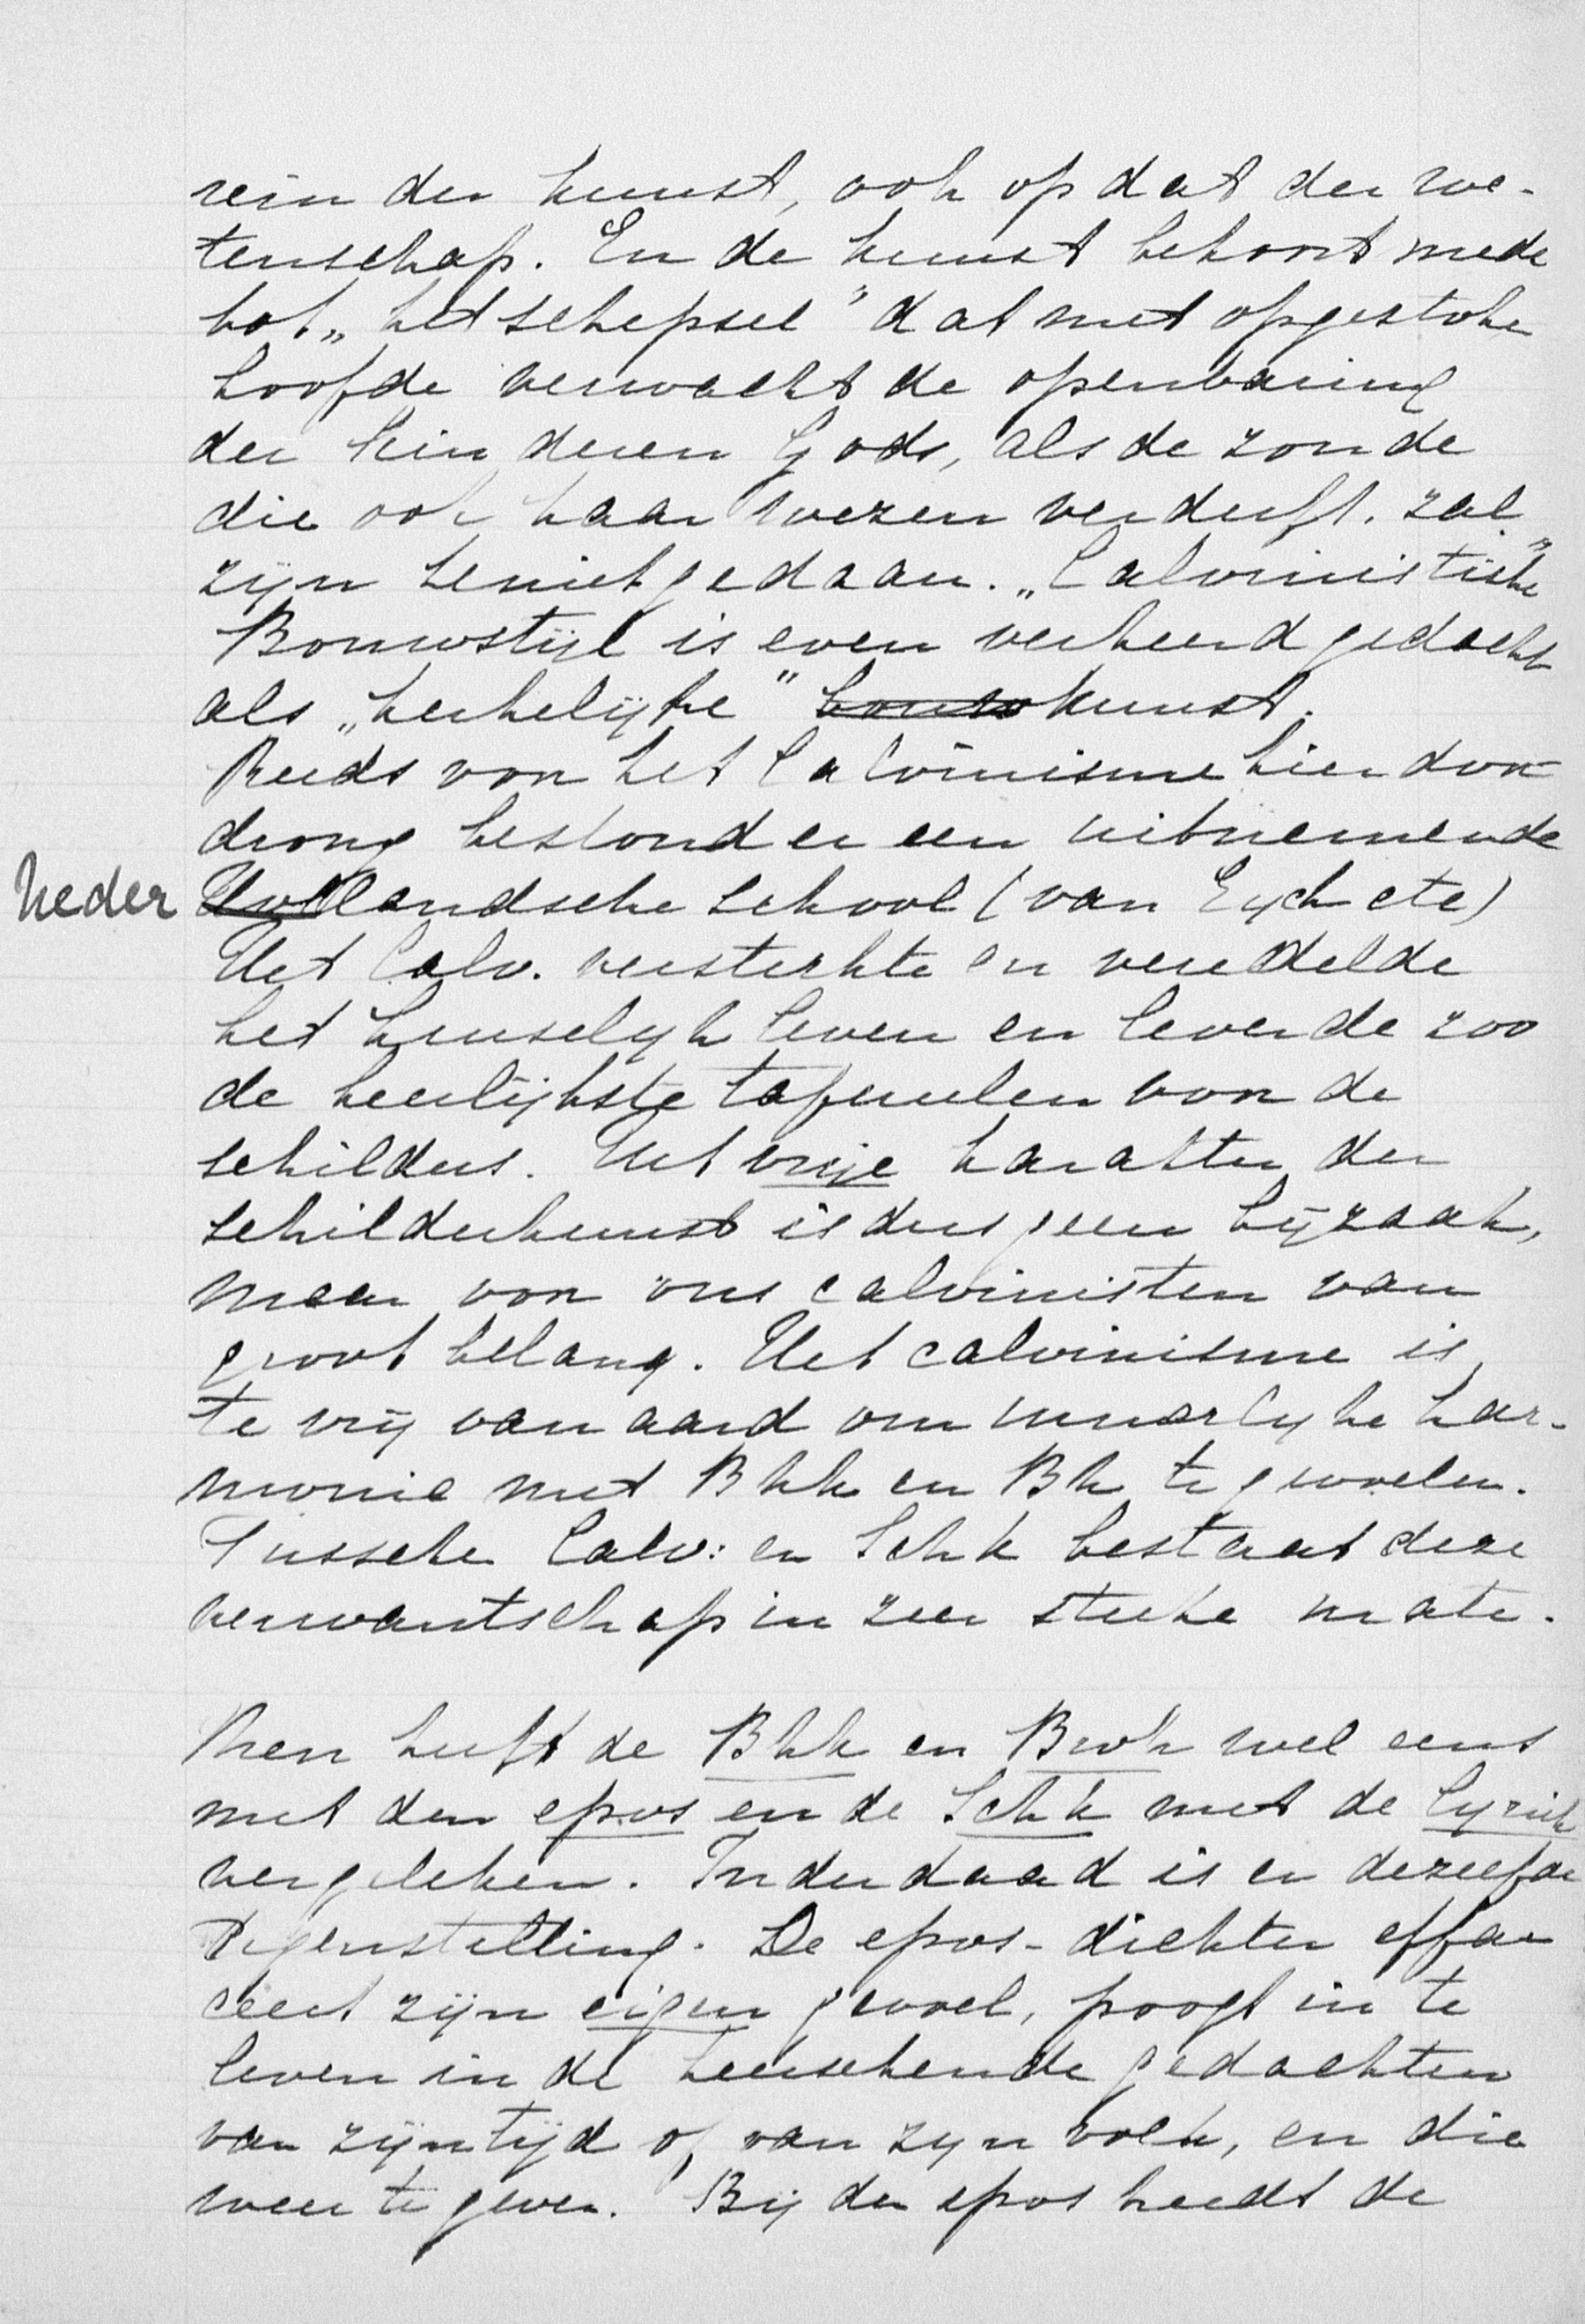 rein der kunst, ook op dat der we-
tenschap. En de kunst behoort mede
tot „het schepsel" dat met opgestoken
hoofde verwacht de openbaring
der kinderen Gods, als de zonde
die ook haar wezen verderft. zal
zijn tenietgedaan. „Calvinistische"
Bouwstijl is even verkeerd gedacht
als „kerkelijke" bouwkunst.
Reeds voor het Calvinisme hier door
drong bestond er een uitnemende
Neder Hollandsche school (van Eyck etc)
Het Calv. versterkte en veredelde
het huiselijk leven en leverde zoo
de heerlijkste tafereelen voor de
schilders. Het vrije karakter der
schilderkunst is dus geen bijzaak,
maar voor ons calvinisten van
groot belang. Het calvinisme is
te vrij van aard om innerlijke har-
monie met Bhk en Bk te gevoelen.
Tussche Calv: en Schk bestaat deze
verwantschap in zeer sterke mate.
Men heeft de Bhk en Bwk wel eens
met den epos en de Schk met de Lyriek
vergeleken. Inderdaad is er dezelfde
Tegenstelling. De epos-dichter effa
ceert zijn eigen gevoel, poogt in te
leven in de heerschende gedachten
van zijn tijd of van zijn volk, en die
weer te geven. Bij den epos treedt de